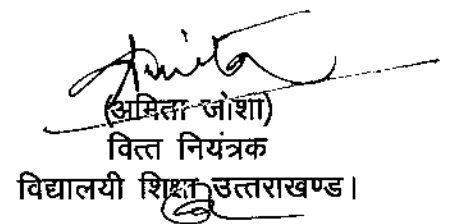 Amita
(अमिता जोशी)
वित्त नियंत्रक
विद्यालयी शिक्षा उत्तराखण्ड।